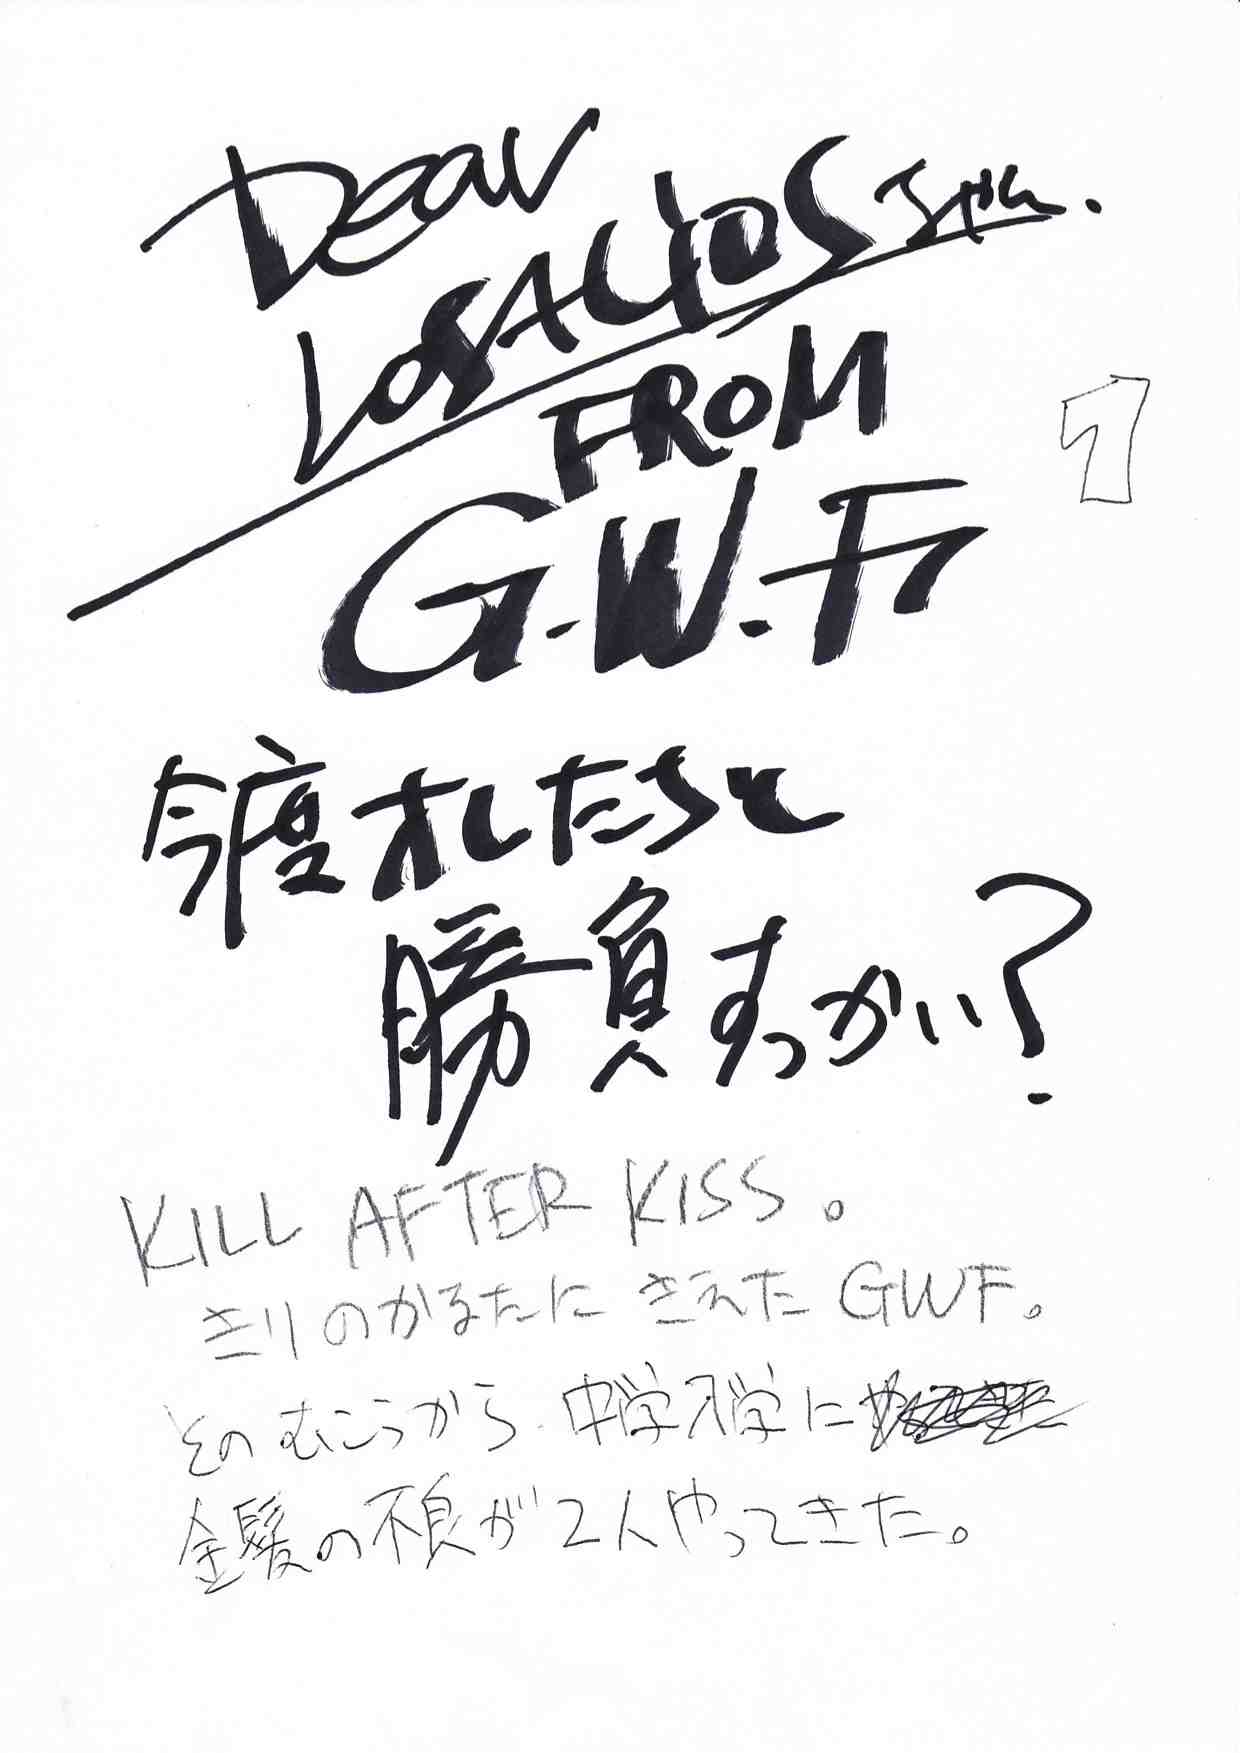 Dear
LOSALIOS さん.
FROM
1
G.W.F
今度オレたちと
勝負すっかい?
KILL AFTER KISS。
きりのかなたに きえた GWF。
そのむこうから 中学入学に
金髪の不良が2人やってきた。